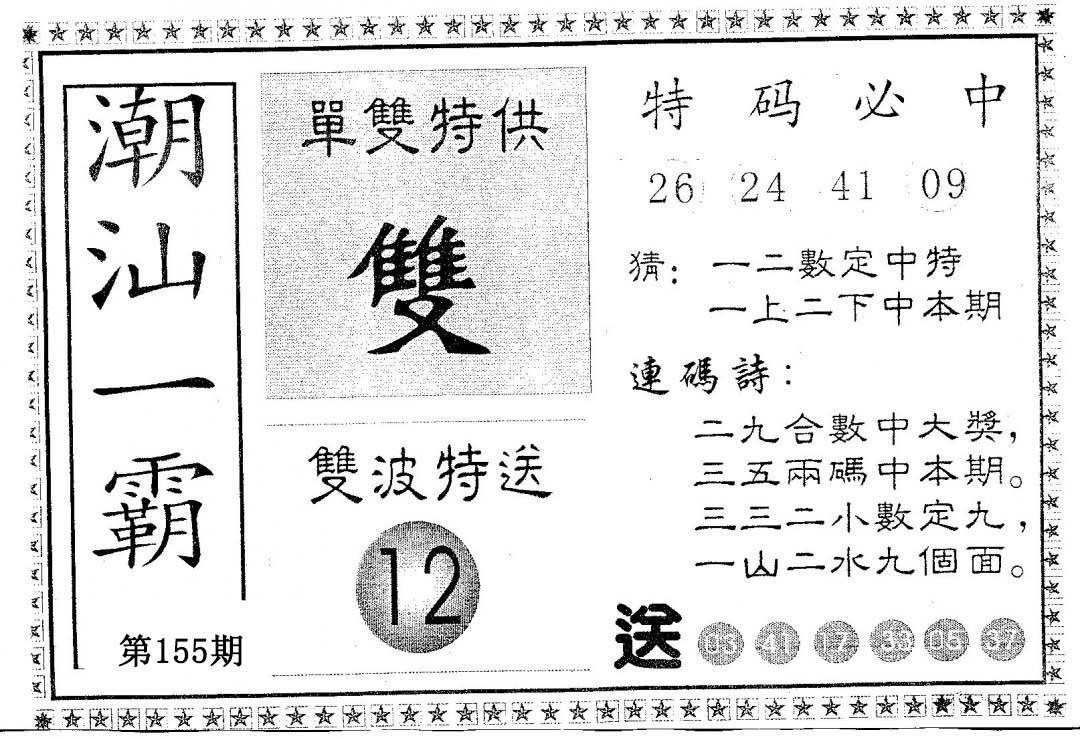 潮汕一霸
第155期
單雙特供
雙
雙波特送
12
特码必中
26 24 41 09
猜：一二數定中特
一上二下中本期
連碼詩：
二九合數中大獎，
三五兩碼中本期。
三三二小數定九，
一山二水九個面。
送 03 41 17 33 05 37